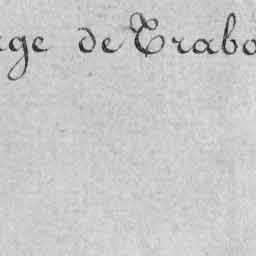 ge de Trabo